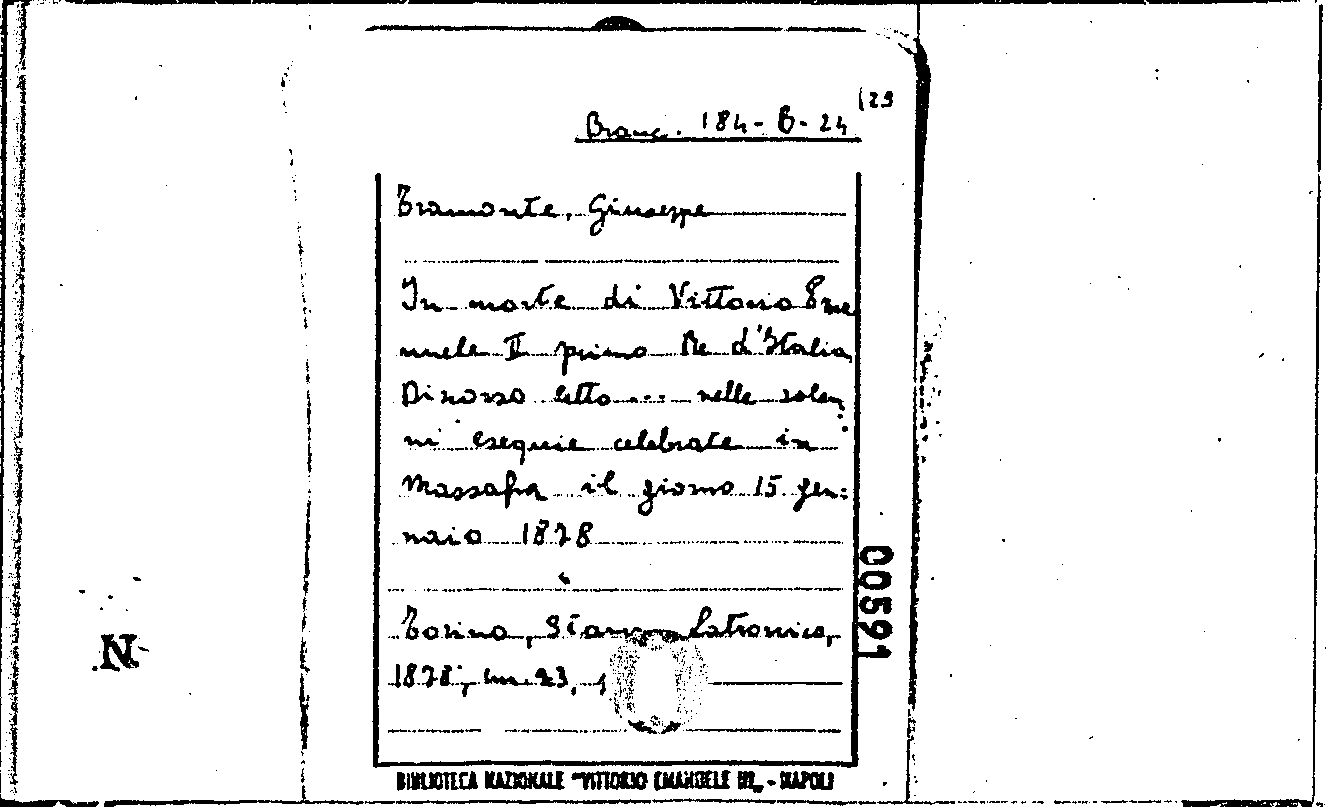 (29
Branc. 184-B-24
Tramonte, Giuseppe
In morte di Vittorio Ema
nuele II primo Re d'Italia,
Discorso letto ... nelle solen
ni esequie celebrate in
Massafra il giorno 15 gen=
naio 1878
00591
Torino, Stam. Latronico,
1878, cm. 23,
N
BIBLIOTECA NAZIONALE "VITTORIO EMANUELE III" - NAPOLI